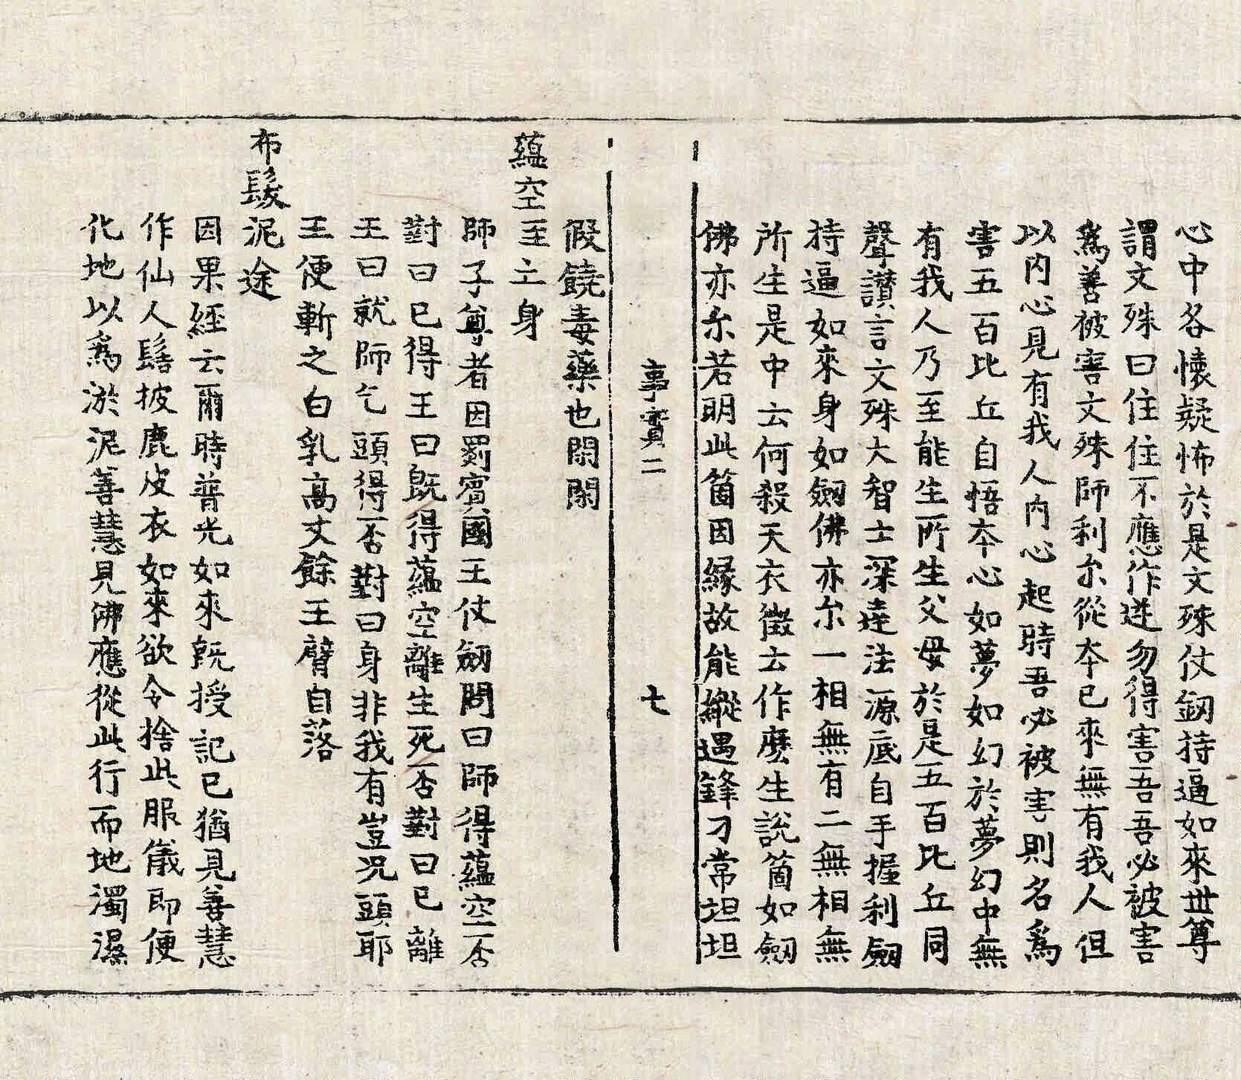 心中各懷疑怖於是文殊仗劔持逼如來世尊
謂文殊曰住住不應作逆勿得害吾吾必被害
爲善被害文殊師利尒從夲已來無有我人但
以內心見有我人內心起時吾必被害則名爲
害五百比丘自悟夲心如夢如幻於夢幻中無
有我人乃至能生所生父母於是五百比丘同
聲讃言文殊大智士深達法源底自手握利劔
持逼如來身如劔佛亦尒一相無有二無相無
所生是中云何殺天衣徵云作麽生說箇如劔
佛亦尒若明此箇因緣故能縱遇鋒刀常坦坦
事實二 七
假饒毒藥也閑閑
蘊空至亡身
師子尊者因罽賓國王仗劔問曰師得蘊空否
對曰已得王曰既得蘊空離生死否對曰已離
王曰就師乞頭得否對曰身非我有豈况頭耶
王便斬之白乳高丈餘王臂自落
布髮泥途
因果經云爾時普光如來旣授記已猶見善慧
作仙人髻披鹿皮衣如來欲令捨此服儀即便
化地以爲淤泥善慧見佛應從此行而地濁濕